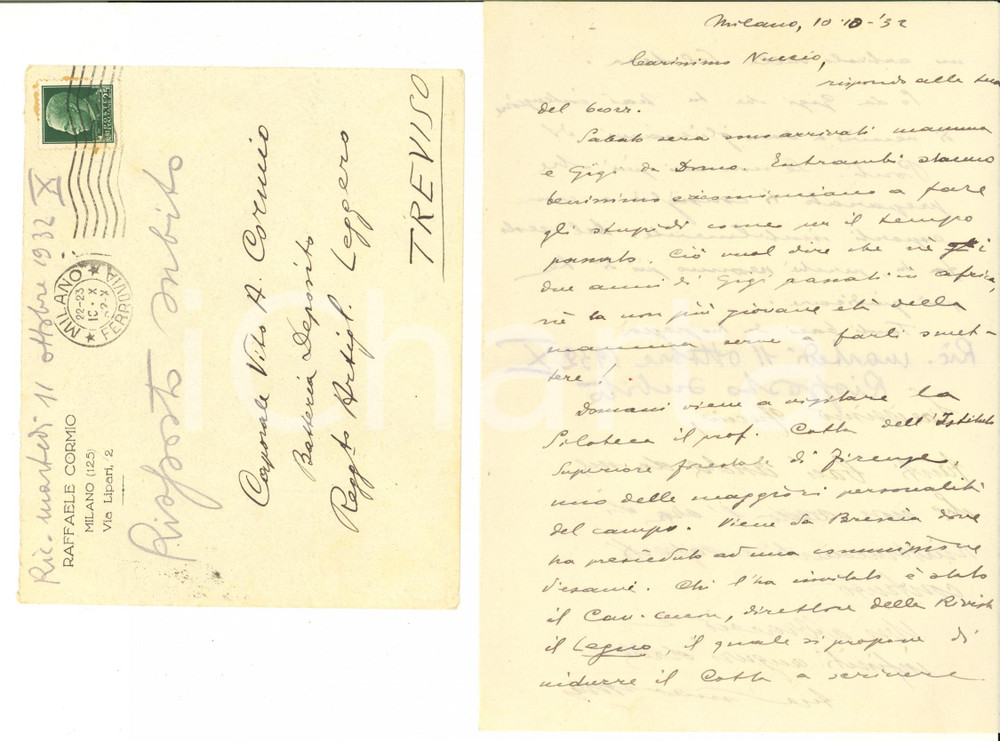 Ric. martedì 11 ottobre 1932 X
Risposto subito
RAFFAELE CORMIO
MILANO (125)
Via Lipari, 2
MILANO
22-23
10·X
FERROVIA
Caporale Vito A. Cormio
Batteria Deposito
Reggto Artigl. Leggero
TREVISO
Milano, 10-10-'32
Carissimo Nuccio,
rispondo alla tua
del corr.
Sabato sera sono arrivati mamma
e Gigi da Domo. Entrambi stanno
benissimo e ricominciano a fare
gli stupidi come per il tempo
passato. Ciò vuol dire che nè i
due anni di Gigi passati in Africa,
nè la non più giovane età della
mamma serve a farli smet-
tere!
Domani viene a visitare la
Siloteca il prof. Cotta dell'Istituto
Superiore forestale di Firenze,
uno delle maggiori personalità
del campo. Viene da Brescia dove
ha presieduto ad una commissione
d'esami. Chi l'ha invitato è stato
il direttore della Rivista
il Legno, il quale si propone di
ridurre il Cotta a scrivere
Ric. martedì 11 ottobre 1932 X
Risposto subito